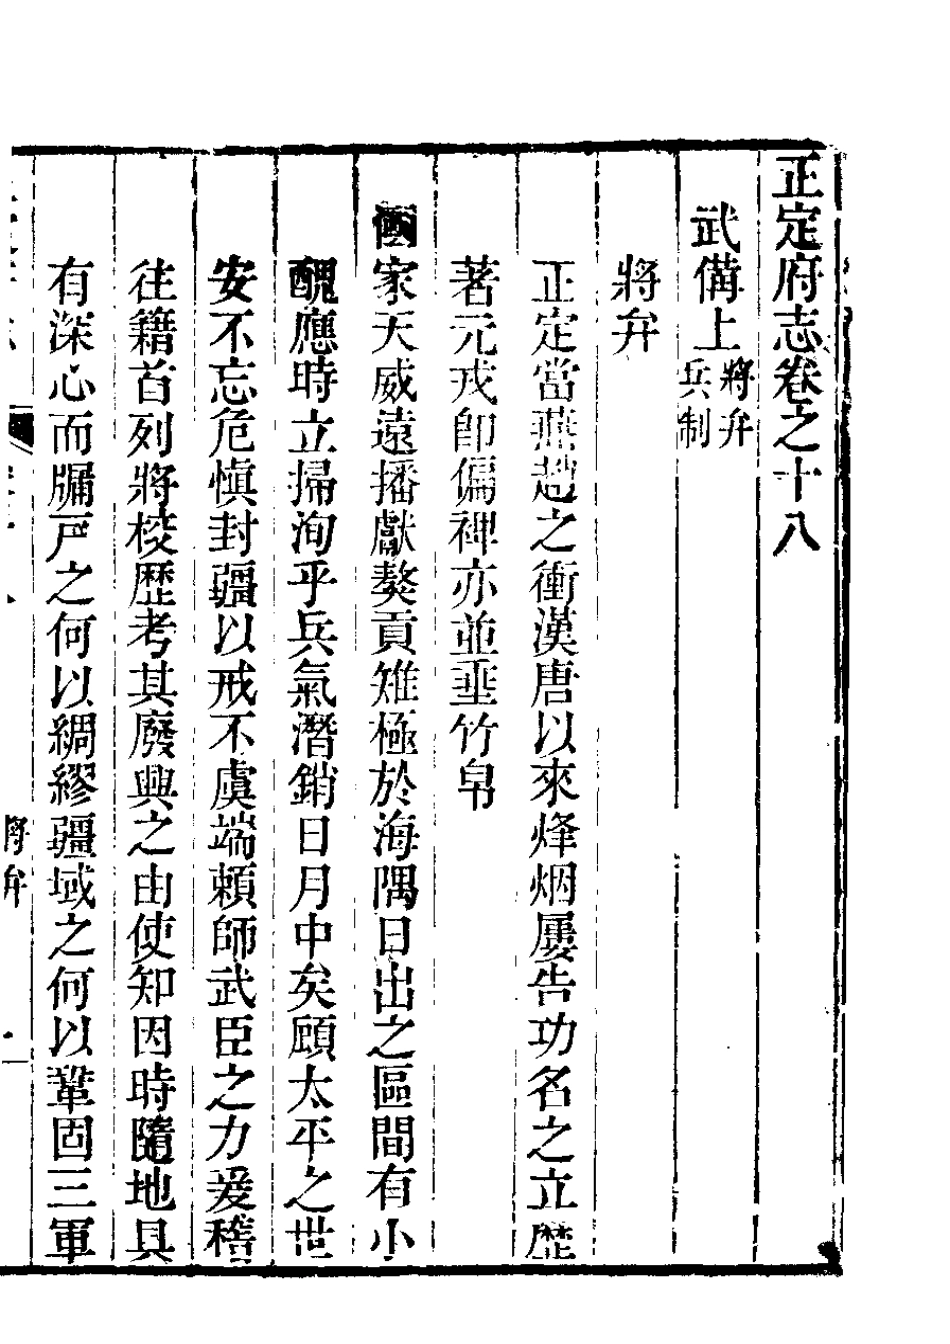 正定府志卷之十八
武備上將弁兵制
將弁
正定當燕趙之衝漢唐以來烽烟屢告功名之立歷
著元戎卽偏裨亦並垂竹帛
國家天威遠播獻獒貢雉極於海隅日出之區間有小
醜應時立掃洵乎兵氣潛銷日月中矣顧太平之世
安不忘危愼封疆以戒不虞端賴師武臣之力爰稽
往籍首列將校歷考其廢興之由使知因時隨地具
有深心而牖戸之何以綢繆疆域之何以鞏固三軍
將弁
一